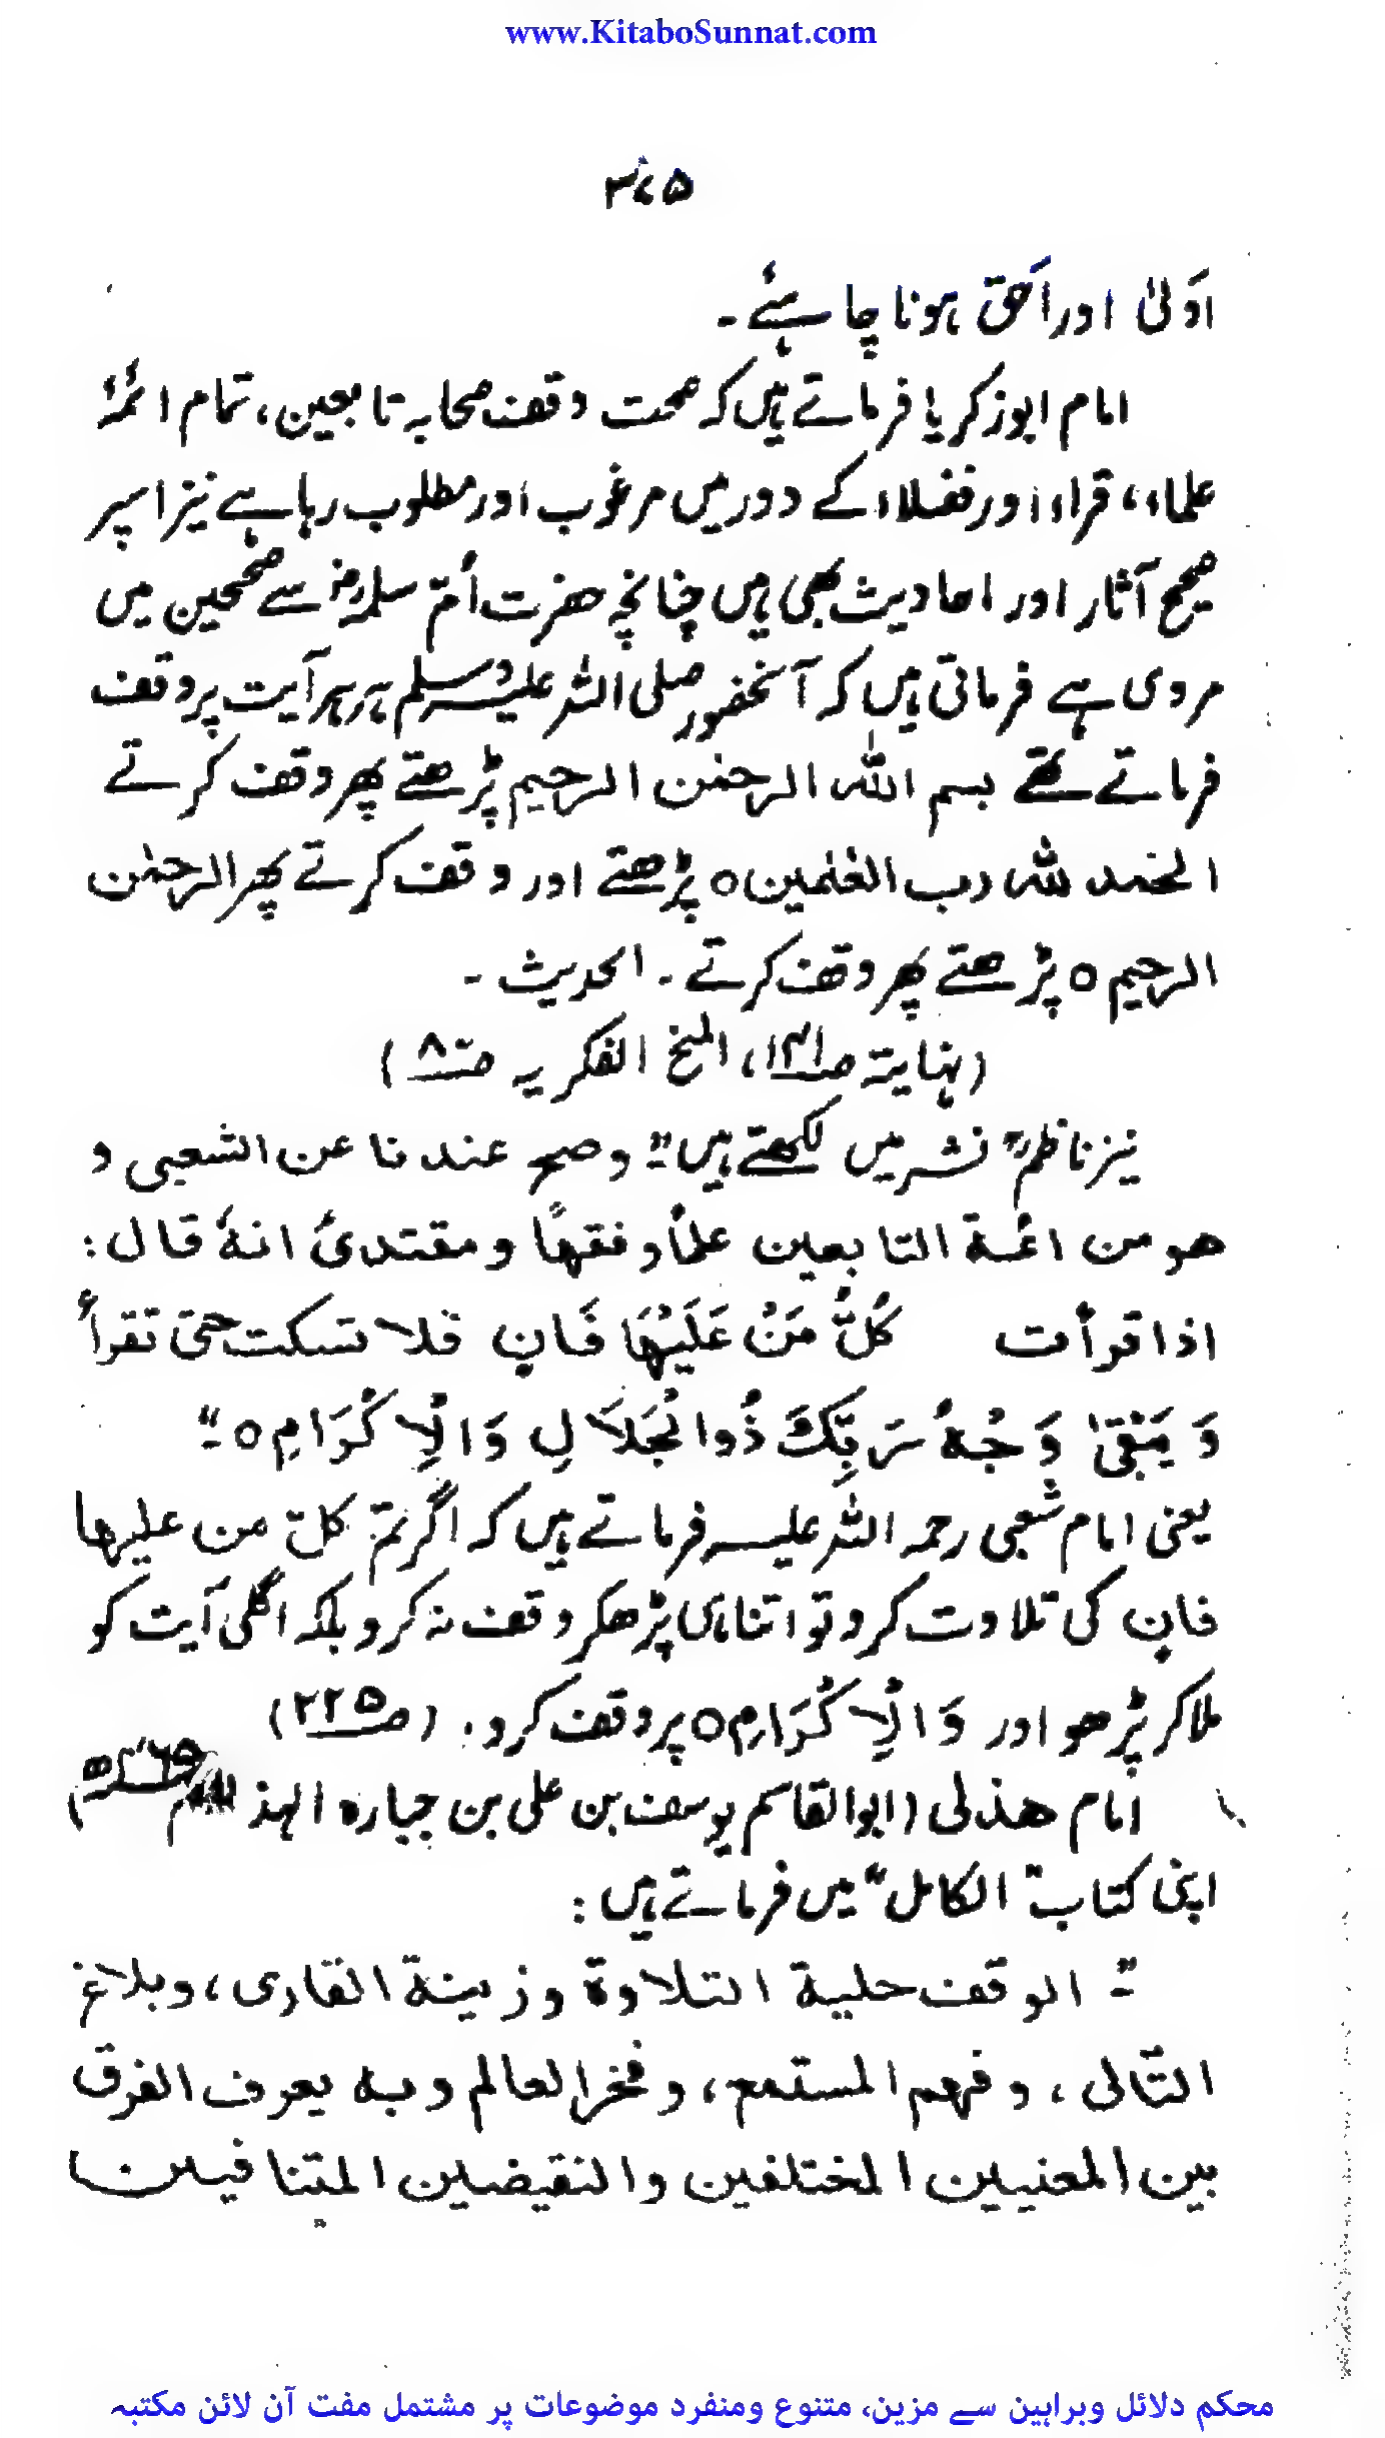 www.KitaboSunnat.com
۳۷۵
اَولیٰ اور اَحَق ہونا چاہئے ۔
امام ابوزکریا فرماتے ہیں کہ صحت وقف صحابہ تابعین، تمام ائمۂ
علماء، قراء اور فضلاء کے دور میں مرغوب اور مطلوب رہا ہے نیز اسپر
صحیح آثار اور احادیث بھی ہیں چنانچہ حضرت اُمّ سلمہ رض سے صحیحین میں
مروی ہے فرماتی ہیں کہ آنحضور صلی اللہ علیہ وسلم ہر ہر آیت پر وقف
فرماتے تھے بسم اللہ الرحمٰن الرحیم پڑھتے پھر وقف کرتے
الحمد للہ رب العٰلمین ٥ پڑھتے اور وقف کرتے پھر الرحمٰن
الرحیم ٥ پڑھتے پھر وقف کرتے ۔ الحدیث ۔
(نہایۃ ص، المنح الفکریہ ص)
نیز ناظمؒ نشر میں لکھتے ہیں " وصح عندنا عن الشعبی و
ھو من ائمۃ التابعین علماً وفقھاً ومقتدیً انہٗ قال :
اذا قرأت کُلُّ مَنْ عَلَیْہَا فَانٍ فلا تسکت حتی تقرأ
وَیَبْقیٰ وَجْہُ رَبِّکَ ذُوالْجَلَالِ وَالْاِکْرَامِ ٥ "
یعنی امام شعبی رحمہ اللہ علیہ فرماتے ہیں کہ اگر تم کلّ من علیہا
فانٍ کی تلاوت کرو تو اتنا ہی پڑھکر وقف نہ کرو بلکہ اگلی آیت کو
ملا کر پڑھو اور وَالْاِکْرَامِ ٥ پر وقف کرو ۔ (ص ۲۲۵)
امام ھذلی (ابوالقاسم یوسف بن علی بن جبارہ الہذلی)
اپنی کتاب " الکامل " میں فرماتے ہیں :
" الوقف حلیۃ التلاوۃ وزینۃ القاری، وبلاغ
التّالی، وفھم المستمع، وفخر العالم وبہ یعرف الفرق
بین المعنیین المختلفین والنقیضین المتنافیین
محکم دلائل وبراہین سے مزین، متنوع ومنفرد موضوعات پر مشتمل مفت آن لائن مکتبہ